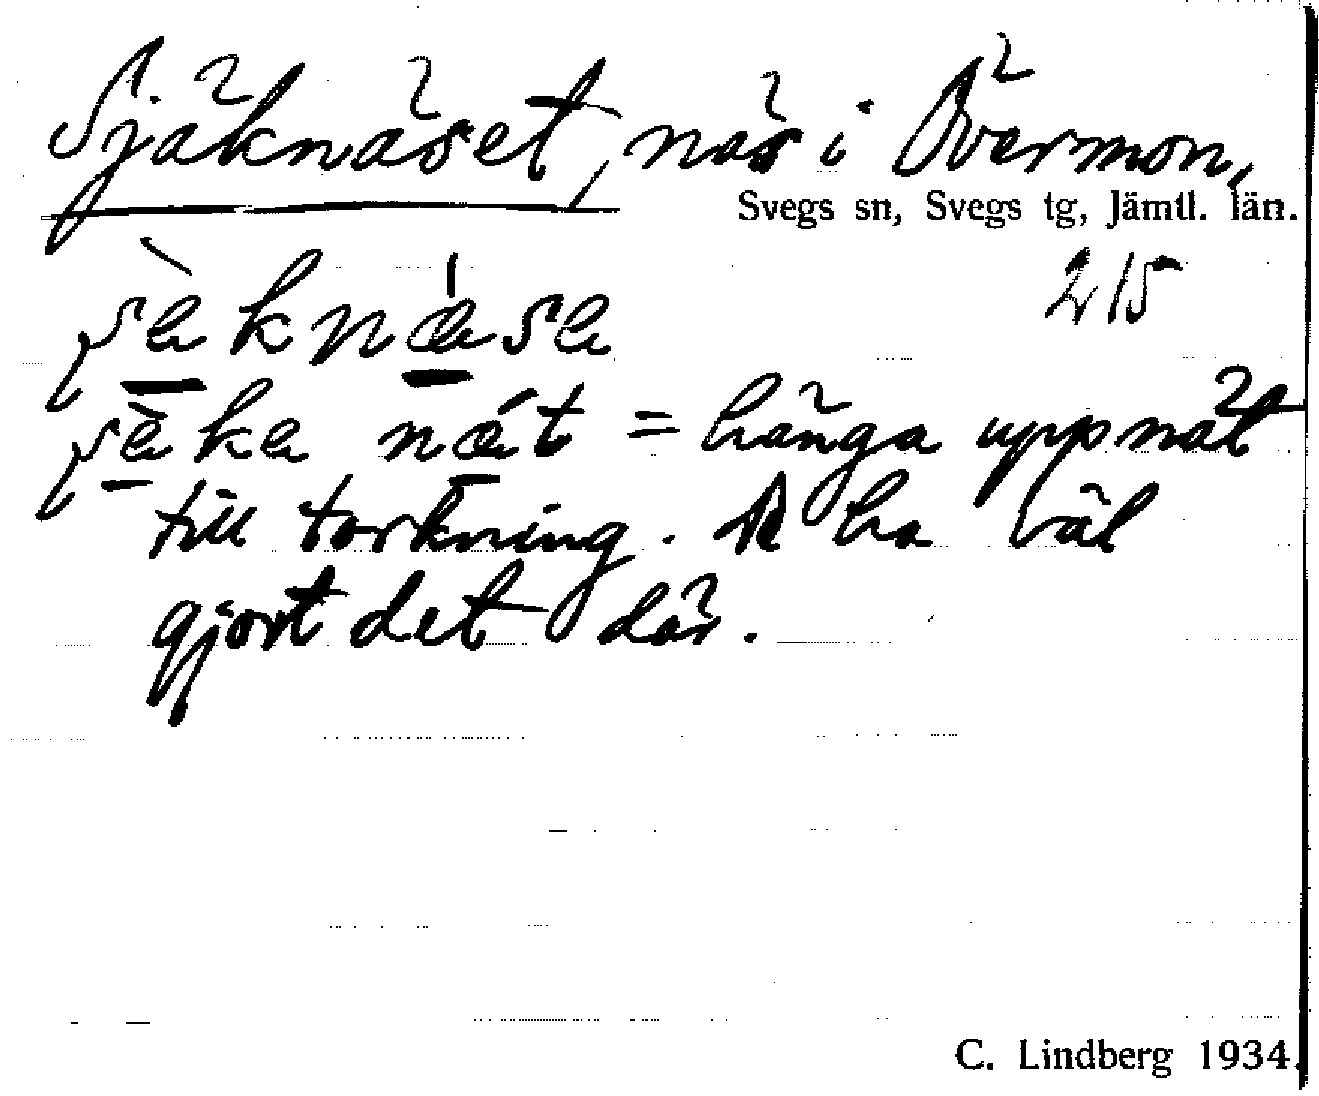 Sjäknäset, näs i Övermon,
Svegs sn, Svegs tg, Jämtl. län.
215
ʃæ̀knǽsa
ʃæ̀ka nǽt = hänga upp nät
till torkning. R ha väl
gjort det där.
C. Lindberg 1934.